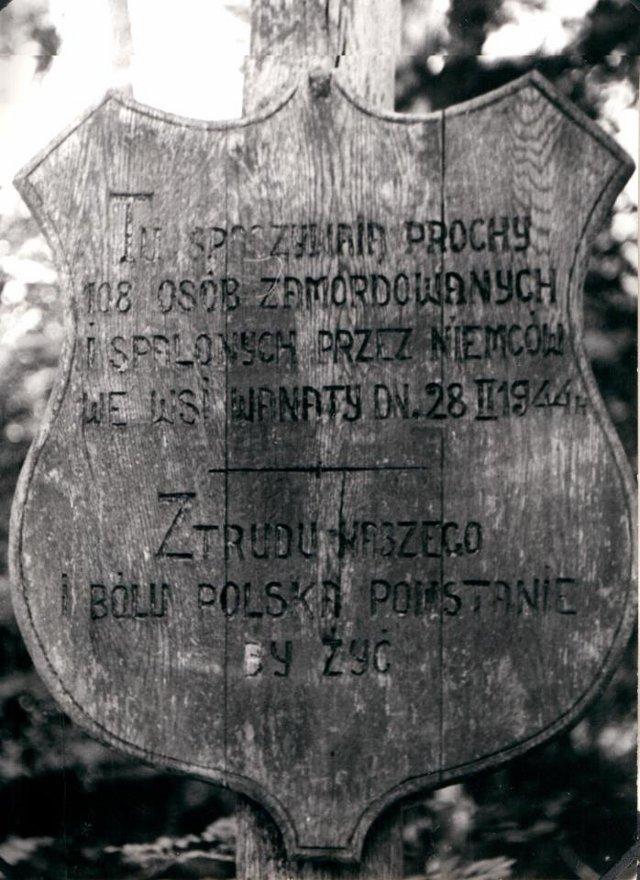 Tu SPOCZYWAJĄ PROCHY
108 OSÓB ZAMORDOWANYCH
i SPALONYCH PRZEZ NIEMCÓW
WE WSi WANATY DN. 28 II 1944 R
Z TRUDU NASZEGO
i BÓLU POLSKA POWSTANIE
BY ŻYĆ